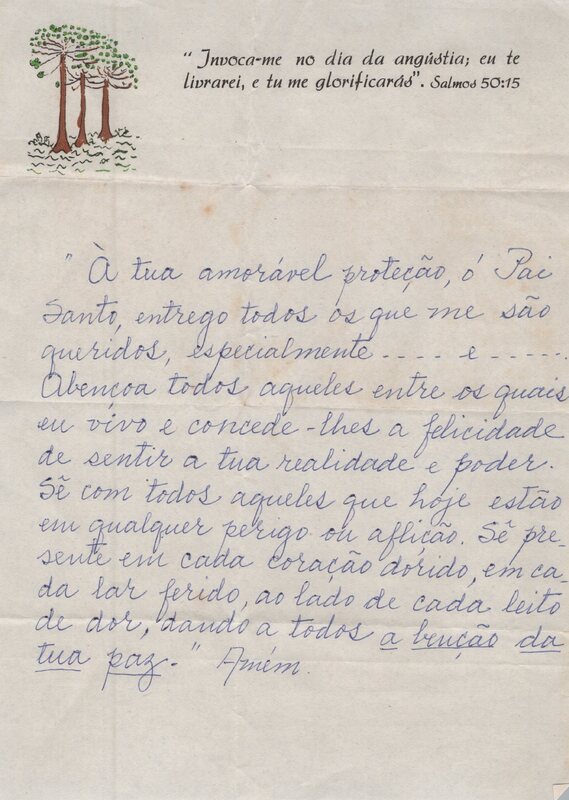 “Invoca-me no dia da angústia; eu te
livrarei, e tu me glorificarás”. Salmos 50:15
" À tua amorável proteção, ó Pai
Santo, entrego todos os que me são
queridos, especialmente .... e ......
Abençoa todos aqueles entre os quais
eu vivo e concede-lhes a felicidade
de sentir a tua realidade e poder.
Sê com todos aqueles que hoje estão
em qualquer perigo ou aflição. Sê pre-
sente em cada coração dórido, em ca-
da lar ferido, ao lado de cada leito
de dor, dando a todos a benção da
tua paz." Amém.